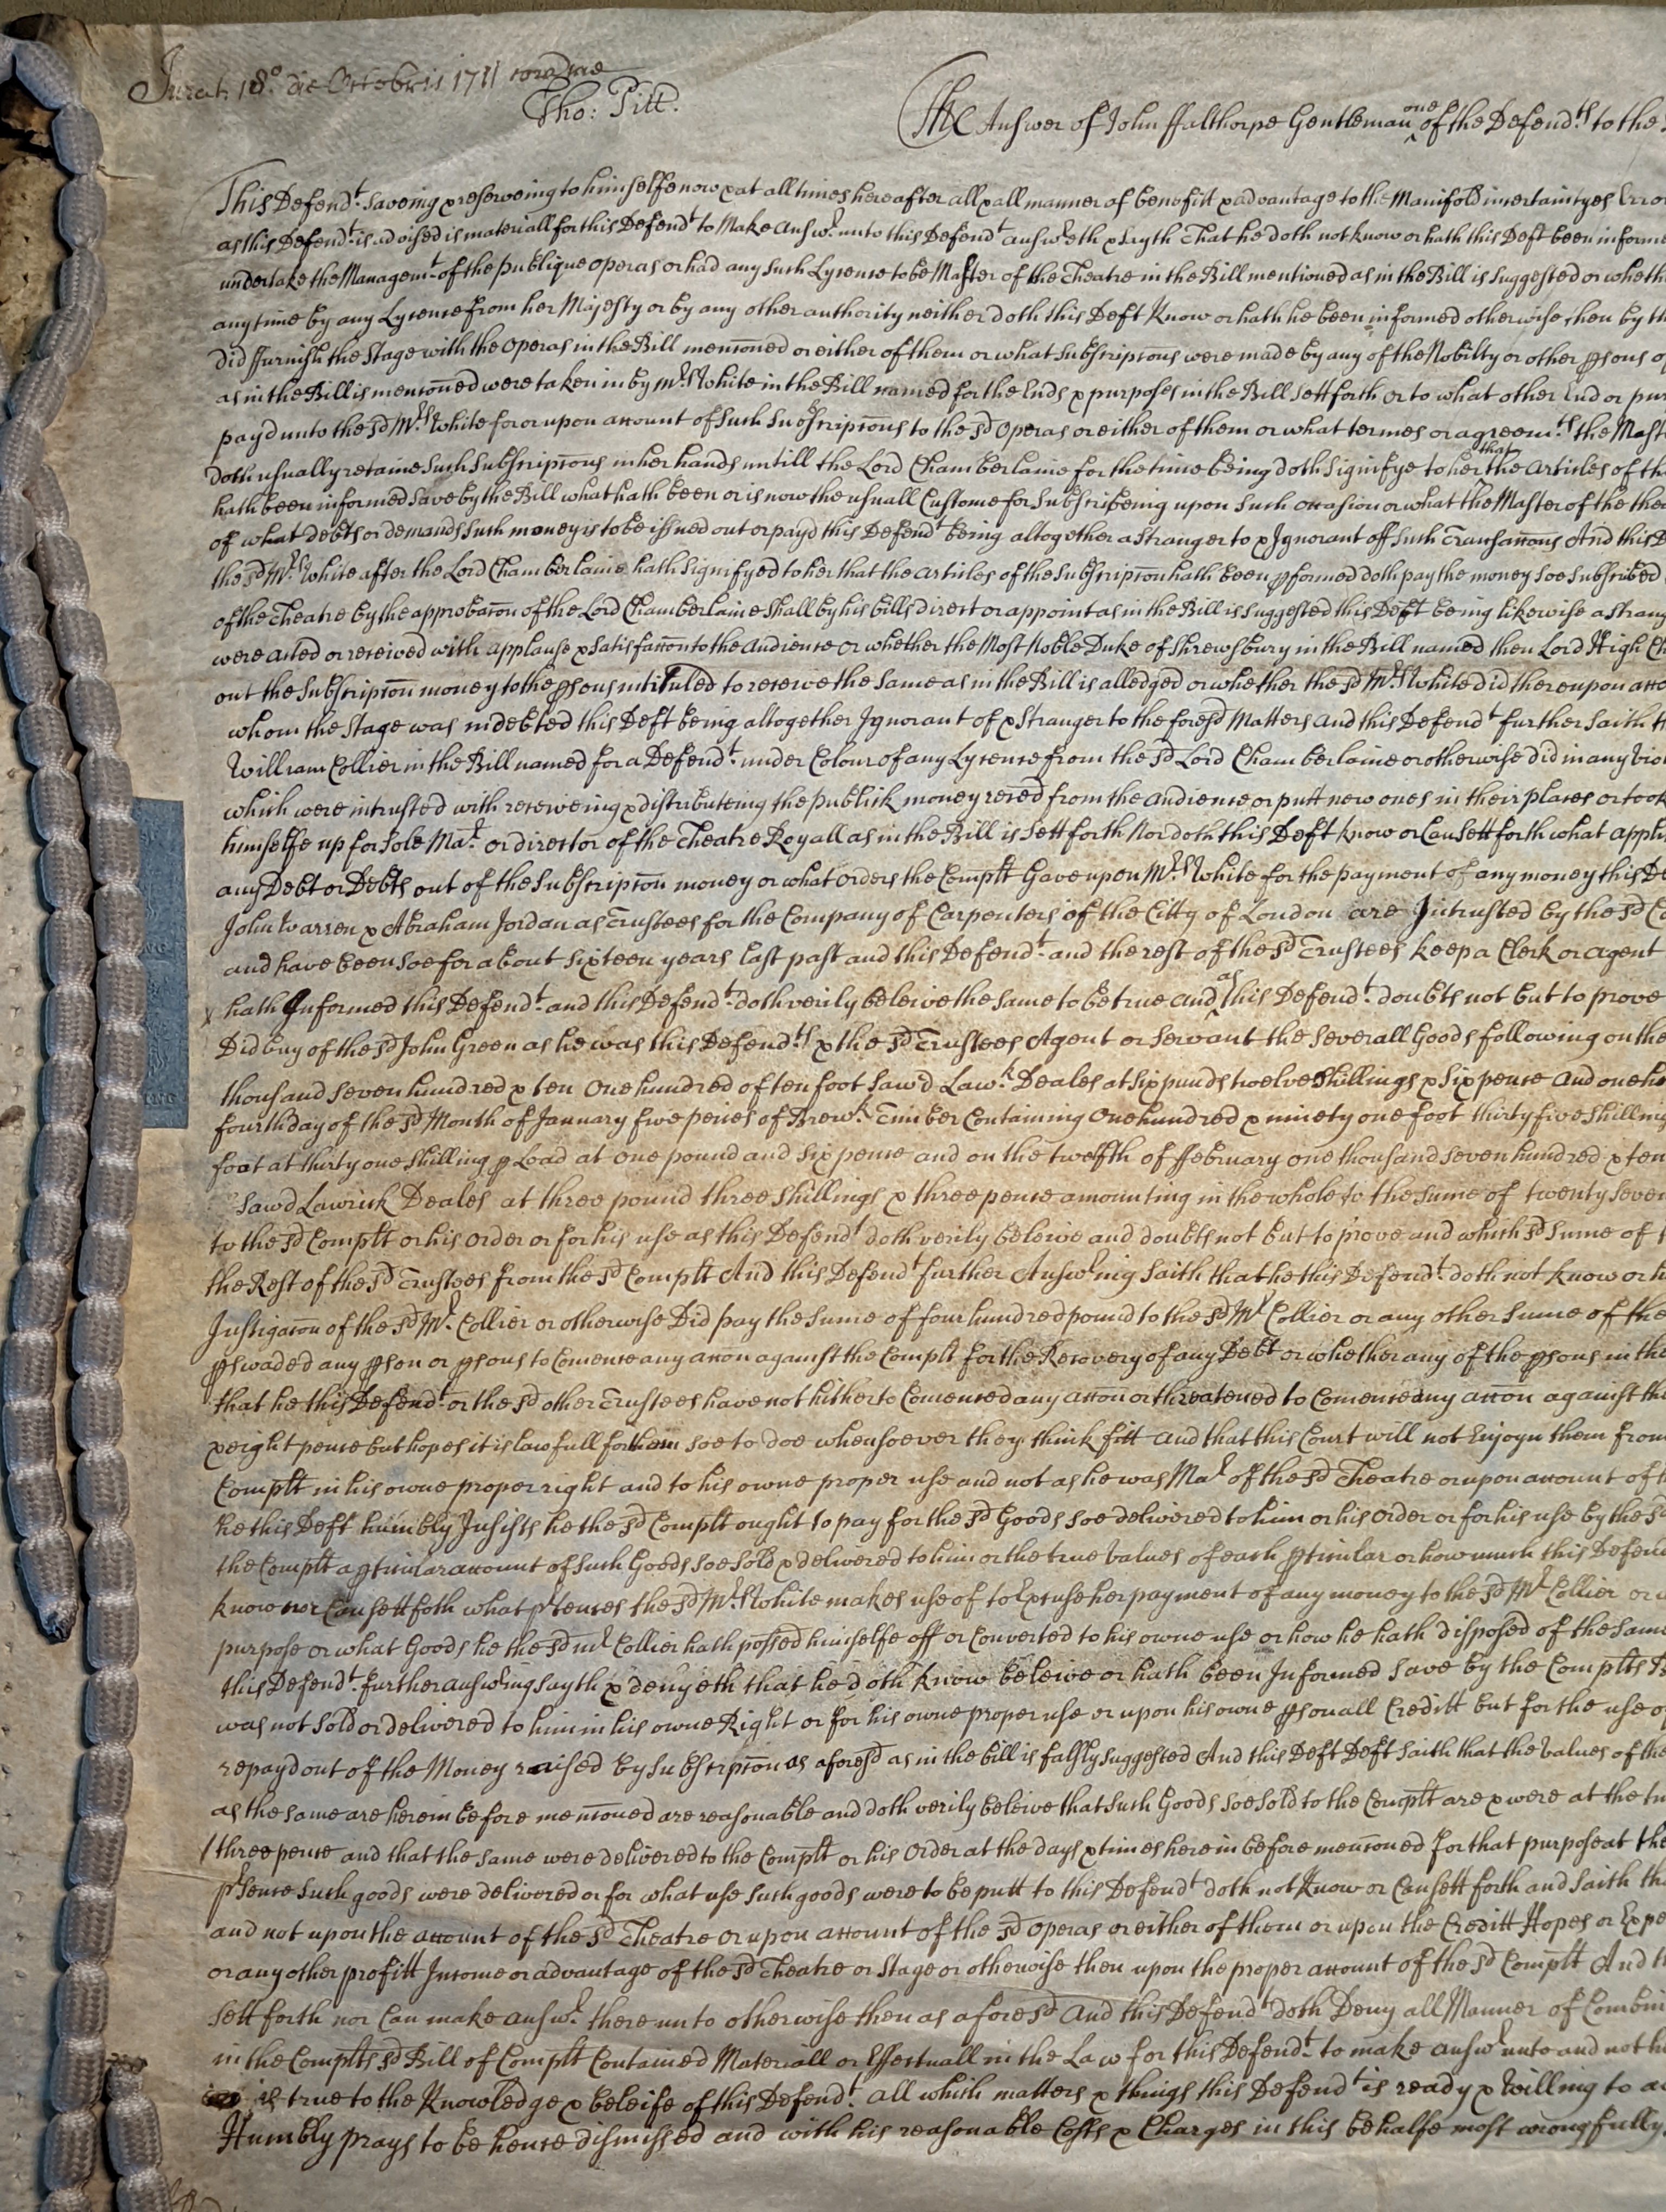 Jurat 18o die Octobris 1711 coram me
Tho: Pitt.
The Answer of John ffalthorpe Gentleman one of the Defendts to the
This Defendt. saveing & reserveing to himselfe now & at all times hereafter all & all manner of benefitt & advantage to the Manifold incertaintyes Erro
as this Defendt. is advised is materiall for this Defendt to Make Answr. unto this Defendt answreth & sayth That he doth not know or hath this Deft been informe
undertake the Managemt. of the publique operas or had any such Lycense to be Master of the Theatre in the Bill mentioned as in the Bill is suggested or wheth
any time by any Lycense from her Majesty or by any other authority neither doth this Deft Know or hath he been informed otherwise then by th
did ffurnish the Stage with the operas in the Bill menconed or either of them or what subscripcons were made by any of the Nobilty or other psons o
as in the Bill is menconed were taken in by Mrs White in the Bill named for the Ends & purposes in the Bill sett forth or to what other End or pur
payd unto the sd Mrs White for or upon account of such subscripcons to the sd operas or either of them or what termes or agreemts. the Mast
doth usually retaine such subscripcons in her hands untill the Lord Chamberlaine for the time being doth signifye to her that the articles of th
hath been informed save by the Bill what hath been or is now the usuall Custome for subscribeing upon such occasion or what the Master of the the
of what debts or demands such money is to be issued out or payd this Defendt being altogether a stranger to & Ignorant off such Transaccons And this D
the sd Mrs. White after the Lord Chamberlaine hath signifyed to her that the articles of the subscripcon hath been pformed doth pay the money soe subscribed
of the Theatre by the approbacon of the Lord Chamberlaine shall by his bills direct or appoint as in the Bill is suggested this Deft being likewise a strang
were acted or received with applause & satisfaccon to the audience or whether the Most Noble Duke of Shrewsbury in the Bill named then Lord High Ch
out the subscripcon money to the psons intituled to receive the same as in the Bill is alledged or whether the sd Mrs White did thereupon acco
whom the Stage was indebted this Deft being altogether Ignorant of & Stranger to the foresd Matters and this Defendt further saith th
William Collier in the Bill named for a Defendt. under Colour of any Lycense from the sd Lord Chamberlaine or otherwise did in any vio
which were intrusted with receiveing & distributeing the publick money reced from the audience or putt new ones in their places or took
himselfe up for sole Mar. or director of the Theatre Royall as in the Bill is sett forth Nor doth this Deft know or Can sett forth what appli
any Debt or Debts out of the subscripcon money or what orders the Complt Gave upon Mrs White for the payment of any money this De
John Warren & Abraham Jordan as Trustees for the Company of Carpenters of the Citty of London are Intrusted by the sd Co
and have been soe for about sixteen years last past and this Defendt. and the rest of the sd Trustees keep a Clerk or agent
hath Informed this Defendt. and this Defendt. doth verily beleive the same to be true and as this Defendt. doubts not but to prove
Did buy of the sd John Green as he was this Defendts. & the sd Trustees Agent or servant the severall Goods following on the
thousand seven hundred & ten One hundred of ten foot saw'd Lawk. Deales at six punds twelve shillings & six pense And one hu
fourth day of the sd Month of January five peices of Brewk. Timber Containing One hundred & ninety one foot thirty five shilling
foot at thirty one shilling p Load at one pound and six pense and on the twelfth of ffebruary one thousand seven hundred & ten
sawd Lawrick Deales at three pound three shillings & three pence amounting in the whole to the sume of twenty seven
to the sd Complt or his order or for his use as this Defendt doth verily beleive and doubts not but to prove and which sd sume of
the Rest of the sd Trustees from the sd Complt And this Defendt further Answring saith that he this Defendt. doth not know or h
Instigacon of the sd Mr. Collier or otherwise Did pay the sume of four hundred pound to the sd Mr Collier or any other sume of the
pswaded any pson or psons to Comence any accon against the Complt for the Recovery of any Debt or whether any of the psons in th
that he this Defendt. or the sd other Trustees have not hitherto Comenced any accon or threatened to Comence any accon against th
& eight pense but hopes it is lawfull for them soe to doe whensoever they think fitt and that this Court will not Enjoyn them from
Complt in his owne proper right and to his owne proper use and not as he was Mar of the sd Theatre or upon account of t
he this Deft humbly Insists he the sd Complt ought to pay for the sd Goods soe delivered to him or his order or for his use by the sd
the Complt a pticular account of such Goods soe sold & delivered to him or the true values of each pticular or how much this Defend
know nor Can sett foth what ptences the sd Mrs White makes use of to Excuse her payment of any money to the sd Mr Collier or
purpose or what Goods he the sd mr Collier hath possed himselfe off or Converted to his owne use or how he hath disposed of the same
this Defendt. further answring sayth & denyeth that he doth know beleive or hath been Informed save by the Complts B
was not sold or delivered to him in his owne Right or for his owne proper use or upon his owne psonall Creditt but for the use o
repayd out of the Money raised by subscripcon as aforesd as in the bill is falsly suggested And this Deft Deft saith that the values of the
as the same are herein before menconed are reasonable and doth verily beleive that such Goods soe sold to the Complt are & were at the
three pence and that the same were delivered to the Complt or his order at the days & times herein before menconed for that purpose at the
psence such goods were delivered or for what use such goods were to be putt to this Defendt doth not Know or Can sett forth and saith th
and not upon the account of the sd Theatre or upon account of the sd operas or either of them or upon the Creditt Hopes or Expe
or any other profitt Income or advantage of the sd Theatre or Stage or otherwise then upon the proper account of the sd Complt And th
sett forth nor Can make answr. thereunto otherwise then as aforesd And this Defendt doth Deny all Manner of Combin
in the Complts sd Bill of Complt Contained Materiall or Effectuall in the Law for this Defendt. to make answr unto and not h
is true to the Knowledge & beleife of this Defendt. all which matters & things this Defendt is ready & willing to a
Humbly prays to be hence dismissed and with his reasonable Costs & Charges in this behalfe most wrongfully